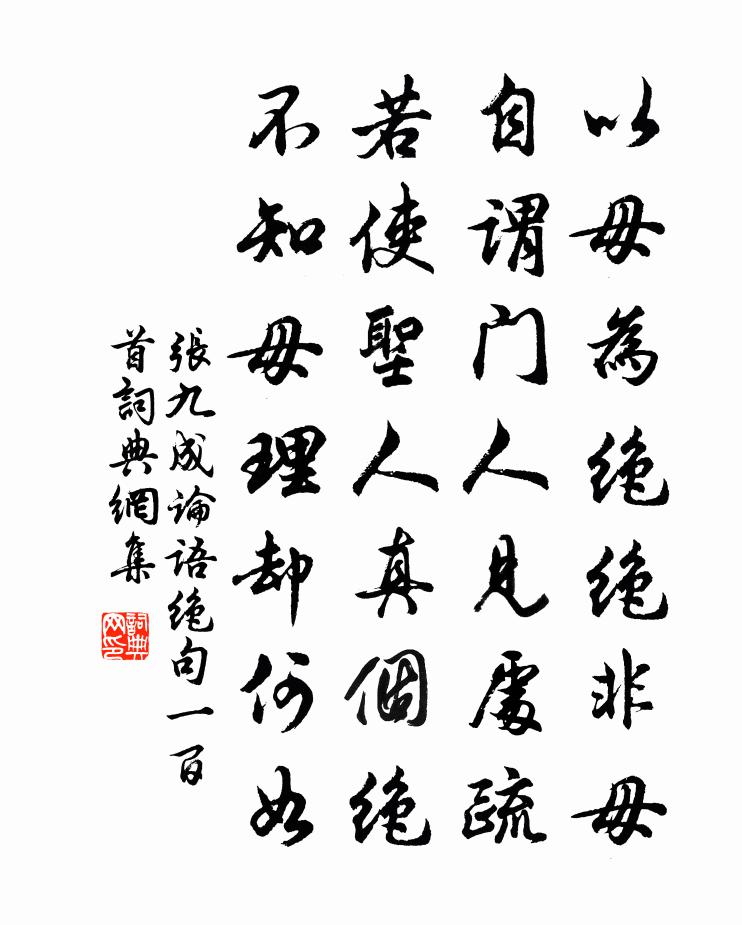 以毋為絕絕非毋
自謂門人見處疏
若使聖人真個絕
不知毋理却何如
張九成論語絕句一百
首詞典網集
詞典网印